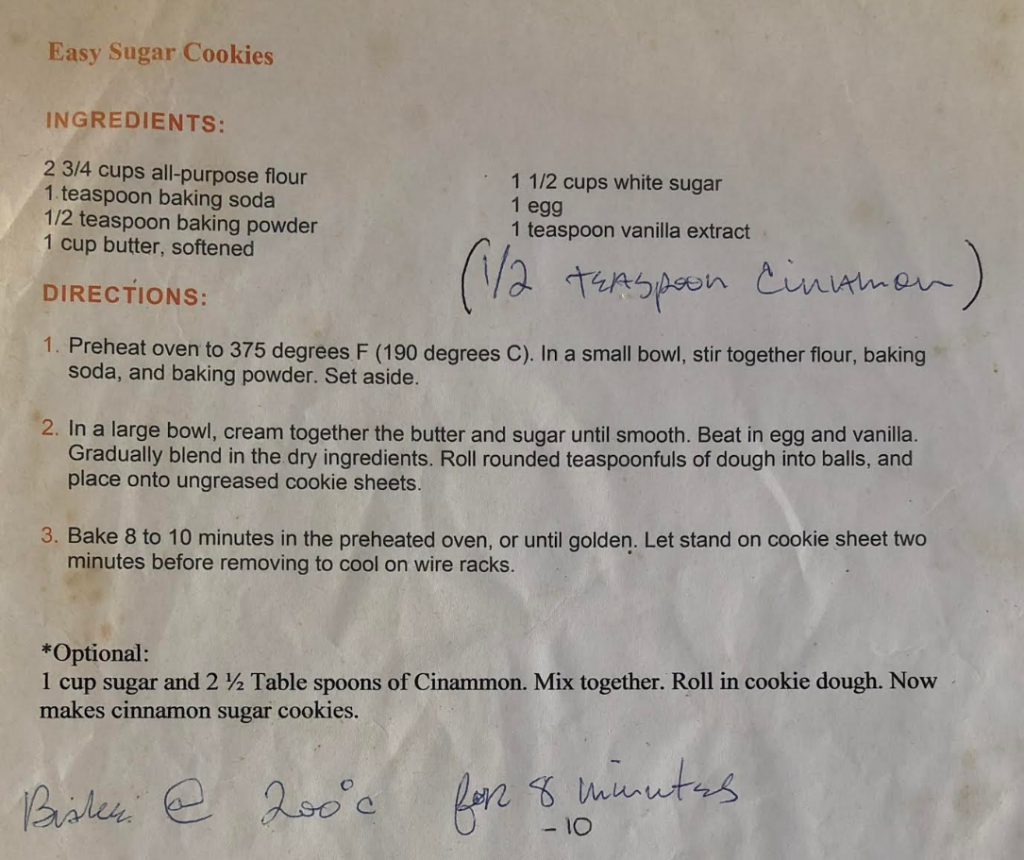 Easy Sugar Cookies
INGREDIENTS:
2 3/4 cups all-purpose flour
1 teaspoon baking soda
1/2 teaspoon baking powder
1 cup butter, softened
1 1/2 cups white sugar
1 egg
1 teaspoon vanilla extract
(1/2 teaspoon Cinnamon)
DIRECTIONS:
1. Preheat oven to 375 degrees F (190 degrees C). In a small bowl, stir together flour, baking
soda, and baking powder. Set aside.
2. In a large bowl, cream together the butter and sugar until smooth. Beat in egg and vanilla.
Gradually blend in the dry ingredients. Roll rounded teaspoonfuls of dough into balls, and
place onto ungreased cookie sheets.
3. Bake 8 to 10 minutes in the preheated oven, or until golden. Let stand on cookie sheet two
minutes before removing to cool on wire racks.
*Optional:
1 cup sugar and 2 ½ Table spoons of Cinammon. Mix together. Roll in cookie dough. Now
makes cinnamon sugar cookies.
@ 200°c for 8 minutes
- 10